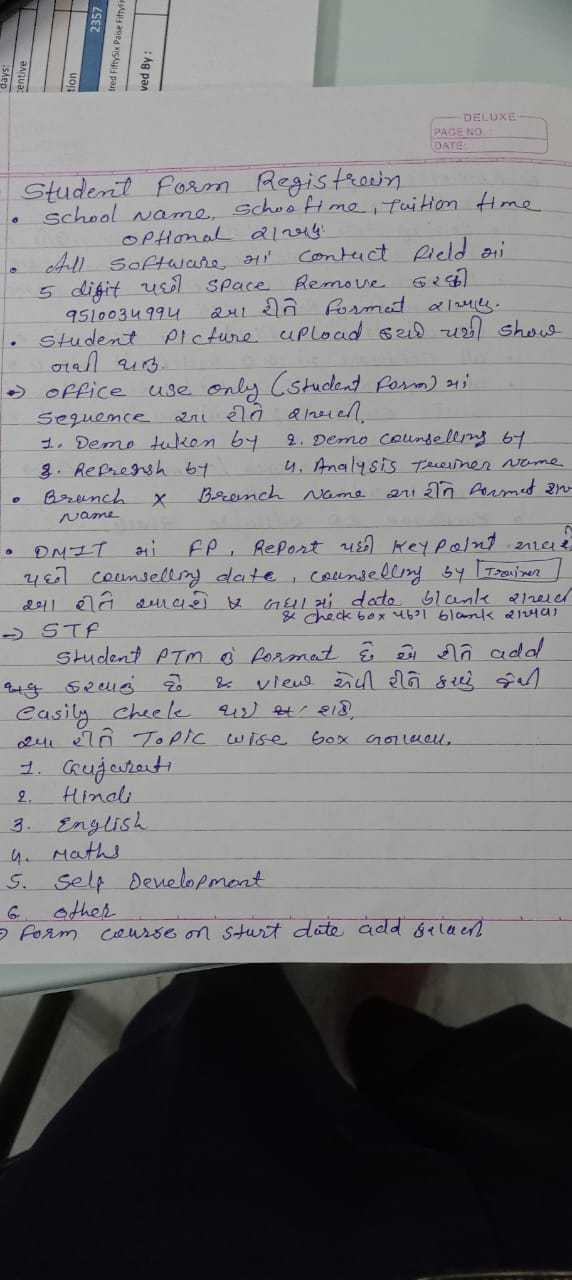 days:
entive
tion
2357
red FiftySix Paise Fifty
ved By :
DELUXE
PAGE NO. :
DATE:
Student Form Registraoin
• School Name, Schoo time, Tuition time
optional રાખવુ.
• All Software માં Contact field માં
5 digit પછી Space Remove કરવી
9510034994 આ રીતે format રાખવુ.
• Student Picture upload કરાવે પછી show
નથી થતુ.
→ office use only (Student form) માં
Sequence આ રીતે રાખવી.
1. Demo taken by 2. Demo counselling by
3. Refregsh by 4. Analysis Treiner Name
• Branch x Branch Name આ રીતે format
Name
• DMIT માં FP, Report પછી Keypoint આવશે
પછી counselling date, counselling by Trainer
આ રીતે આવશે & બધા માં data blank રાખવો
& check box પણ blank રાખવા
→ STF
Student PTM નું format છે એ રીતે add
કરવાનું છે & view એવી રીતે કરવું જેથી
easily check થઈ શકે.
આ રીતે Topic wise box બનાવવા.
1. Gujarati
2. Hindi
3. English
4. Maths
5. Self Development
6. other
→ Form course on Sturt date add કરવાની